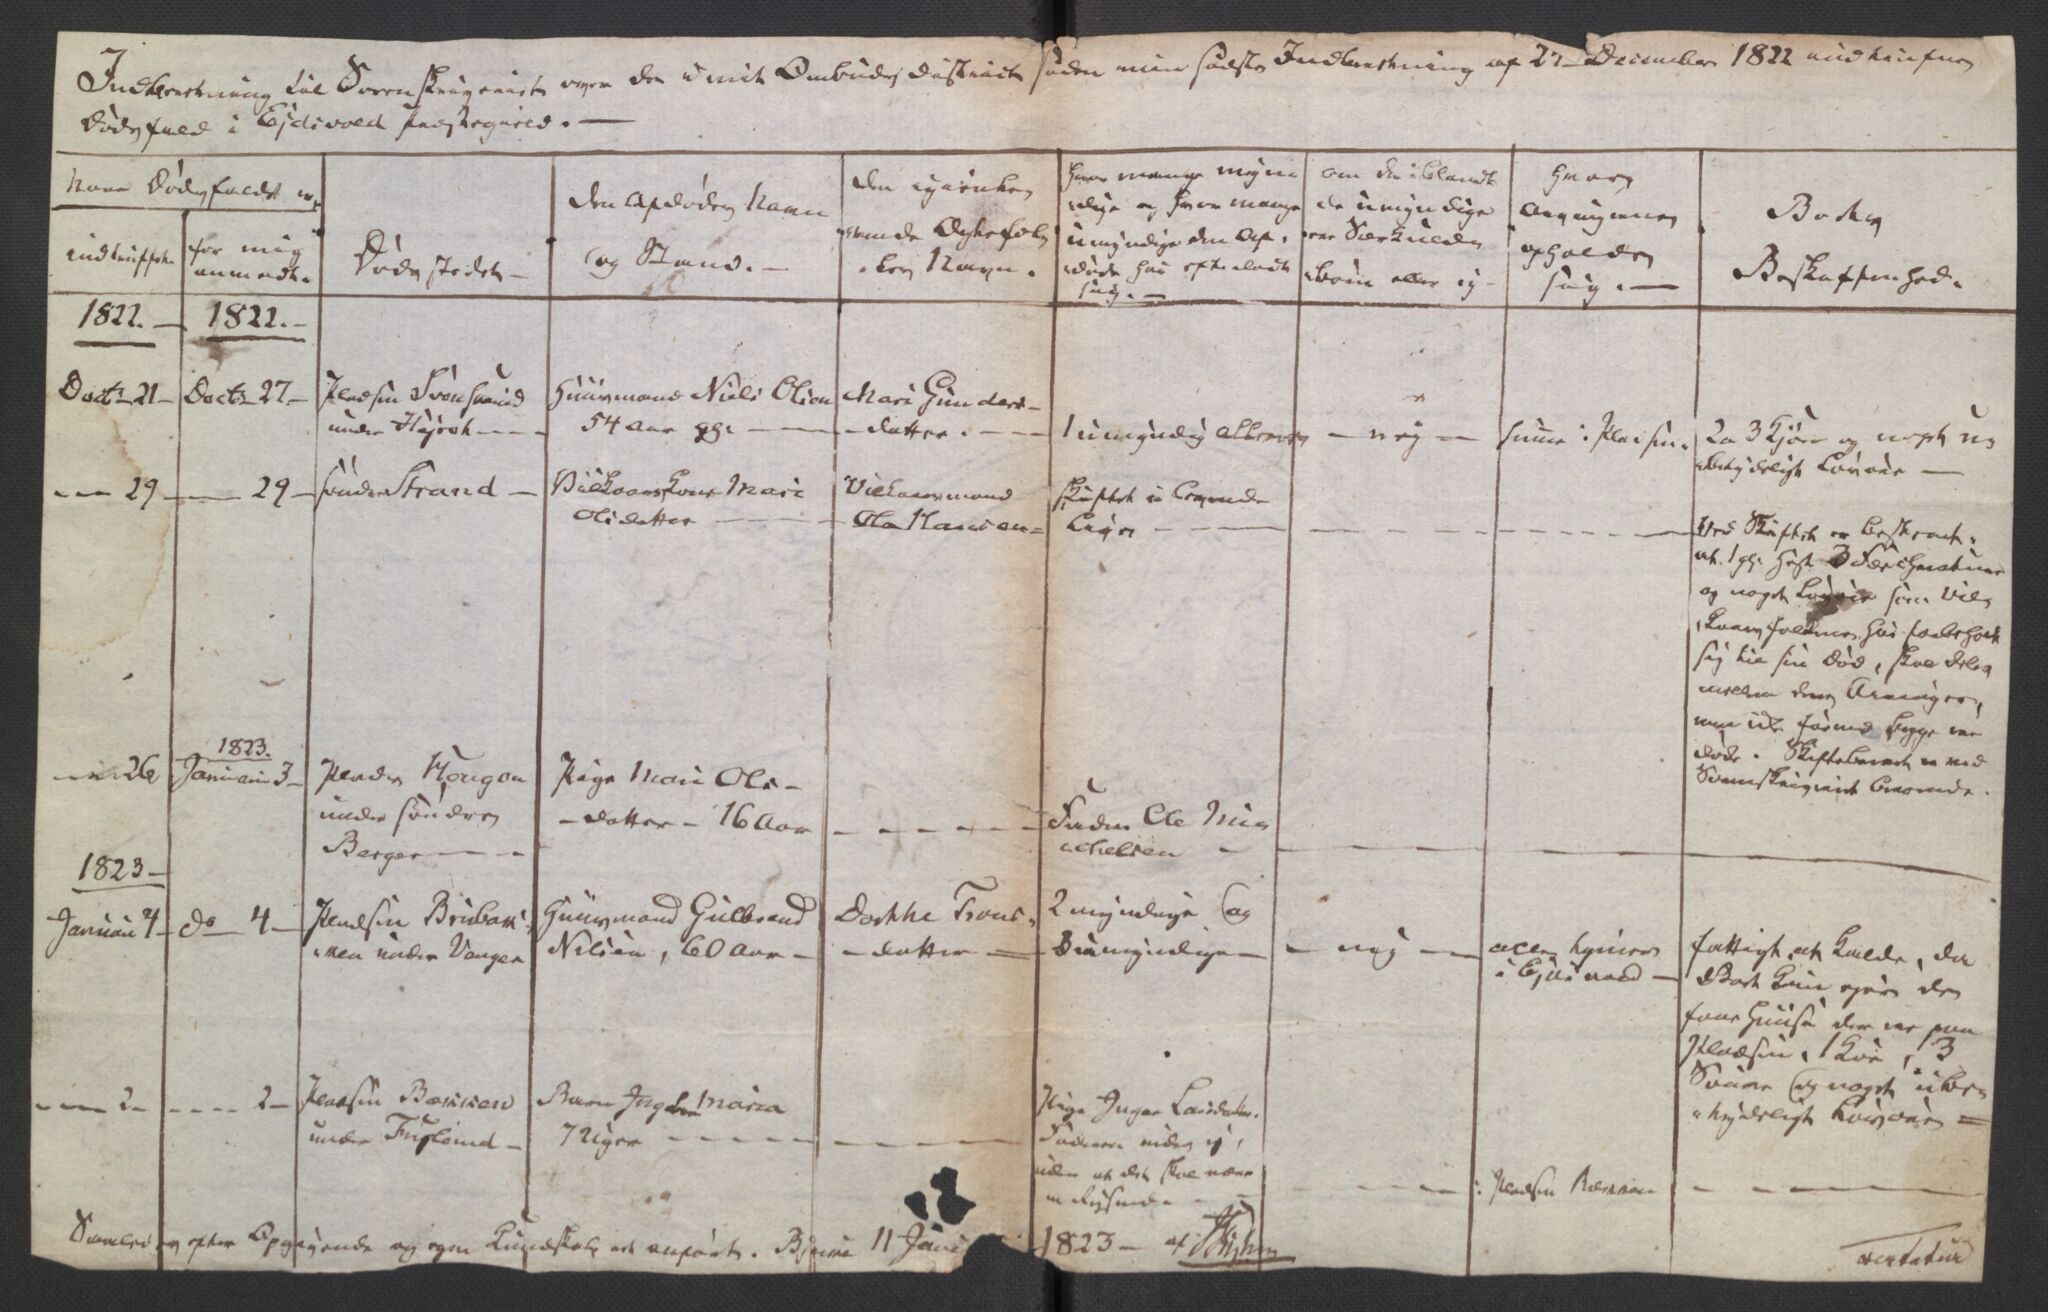 Indberetning til Sorenskriveriet over de i mit Ombuds district siden min sidste Indberetning af 27 December 1822 indtrufne
Dødsfald i Ejdsvold Præstegield. —
Naar Dødsfaldet er
indtruffet.
for mig
anmeldt.
Dødsstedet —
Den Afdødes Navn
og Stand. —
Den igienlev
ende Ægtefol
kes Navn.
Hvor mange mynd
dige og hvor mange
umyndige den Af-
døde har efterladt
sig. —
om der iblandt
de umyndige
ere Særkulds
børn eller ej —
Hvor
Arvingerne
opholder
sig. —
Boets
Beskaffenhed.
1822. — 1822. —
Dectr 21 — Dectr 27 — Pladsen
under — Huusmand Niels Olsen
54 Aar gl. — Mari Gunders-
datter. — 1 umyndig — nej — hiemme i Pladsen. 2 a 3 Kjør og noget u
betydeligt Løsøre —
— 29 — — 29 — søndre Strand — Vilkaarskone Mari
Olsdatter — Vilkaarsmand
Ole Hansen = Skiftet i levende
Live —
Ved Skiftet er bestemt
at 1 gl. Hest 3
og noget Løsøre som Vil
kaarsfolkene har forbeholdt
sig til sin Død, skal deles
mellem deres Arvinger,
men ikke førend begge ere
døde. Skiftebrevet er ved
Sorenskriveriet
— 26 1823.
Januari 3 — Pladsen Haugen
under søndre
Berger — Pige Mari Ols-
datter — 16 Aar — Faderen Ole Mic
chelsen —
1823 —
Januari 4 — do — 4 — Pladsen Brubak-
ken under Vanger Huusmand Gulbrand
Nilsen, 60 Aar — Dorthe Trons-
datter = 2 myndige og
3 umyndige — — nej — alle hiemme
i Ejdsvold — fattigt at kalde, da
Boet kun ejer de
faae Huuse der er paa
Pladsen, 1 Koe, 3
Sauer og noget ube
tydeligt Løsøre =
— 2 — — 2 — Pladsen Bækken
under Fuglend — Barn Ingeborg Maria
7 Uger — Pige Inger Larsdatter.
Faderen vides ej,
uden at det skal være
en — i Pladsen Bækken —
Saaledes efter Opgivende og egen Kundskab er anført. Bjerke 11 Janu 1823 — af